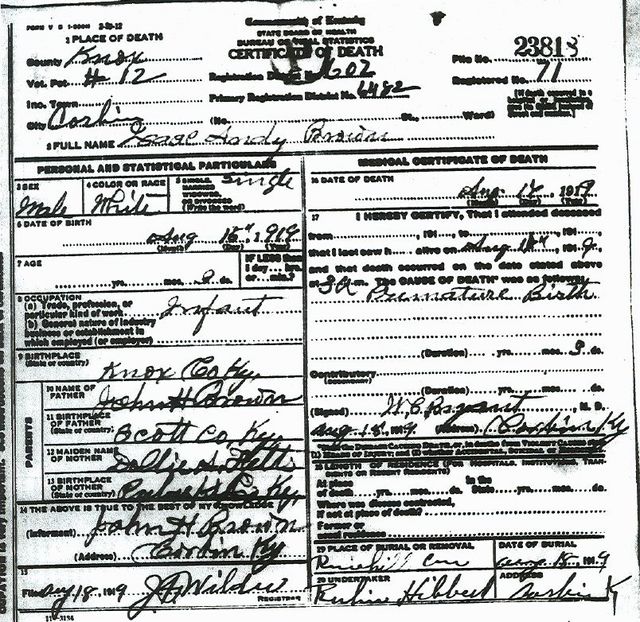 FORM V S 1-500M 2-20-12
Commonwealth of Kentucky
STATE BOARD OF HEALTH
BUREAU OF VITAL STATISTICS
CERTIFICATE OF DEATH
1 PLACE OF DEATH
County Knox
Vot. Pct # 12
Inc. Town
City Corbin
Registration District No. 602
Primary Registration District No. 6482
File No. 23818
Registered No. 71
(No. St., Ward)
2 FULL NAME Isaac Andy Brown
PERSONAL AND STATISTICAL PARTICULARS
3 SEX Male
4 COLOR OR RACE White
5 SINGLE, MARRIED, WIDOWED, OR DIVORCED (Write the word) Single
6 DATE OF BIRTH
Aug 15th, 1919
(Month) (Day) (Year)
7 AGE
yrs. mos. 3 ds.
IF LESS than 1 day... hrs. or... min.?
8 OCCUPATION
(a) Trade, profession, or particular kind of work Infant
(b) General nature of industry business or establishment in which employed (or employer)
9 BIRTHPLACE (State or country)
Knox Co Ky.
PARENTS
10 NAME OF FATHER John H Brown
11 BIRTHPLACE OF FATHER (State or country) Scott Co. Ky.
12 MAIDEN NAME OF MOTHER Dollie A.
13 BIRTHPLACE OF MOTHER (State or country) Ky.
14 THE ABOVE IS TRUE TO THE BEST OF MY KNOWLEDGE
(Informant) John H Brown
(Address) Corbin Ky
15
Filed Aug 18, 1919 J Wilder
REGISTRAR
11-3184
MEDICAL CERTIFICATE OF DEATH
16 DATE OF DEATH
Aug. 18, 1919
(Month) (Day) (Year)
17 I HEREBY CERTIFY, That I attended deceased
from , 191 , to , 191 ,
that I last saw h alive on Aug 18th, 1919,
and that death occurred on the date stated above
at 3 a m. The CAUSE OF DEATH* was as follows:
Premature Birth
(Duration) yrs. mos. 3 ds.
Contributory
(SECONDARY)
(Duration) yrs. mos. ds.
(Signed) , M. D.
Aug 18, 1919 (Address) Corbin Ky
18 LENGTH OF RESIDENCE (FOR HOSPITALS, INSTITUTIONS, TRANSIENTS OR RECENT RESIDENTS)
At place of death yrs. mos. ds. In the State yrs. mos. ds.
Where was disease contracted, if not at place of death?
Former or usual residence
19 PLACE OF BURIAL OR REMOVAL
DATE OF BURIAL
Aug 18, 1919
20 UNDERTAKER
Hibbert
ADDRESS
Corbin K